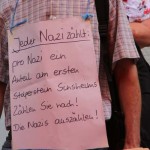 Jeder Nazi zählt.
pro Nazi ein
Anteil am ersten
Zählen Sie nach!
Die Nazis auszählen!